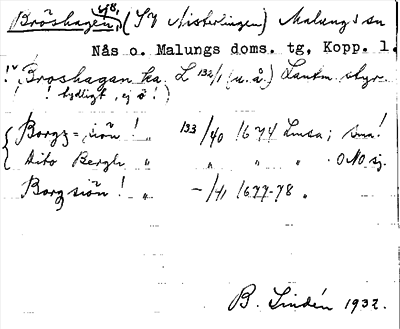 Bröshagen, (SV Nisterlingen) Malungs sn
Nås o. Malungs doms. tg, Kopp. l.
!v Broshagan ka. L 132/1 (u. å.) Lantm. styr.
! ! tydligt, ej ö!)
Borgz-siön! " 133/40 1674 ; sma!
Dito Bergh " " " "
Borgsiön! " -/41 1677-78 "
B. Lindén 1932.